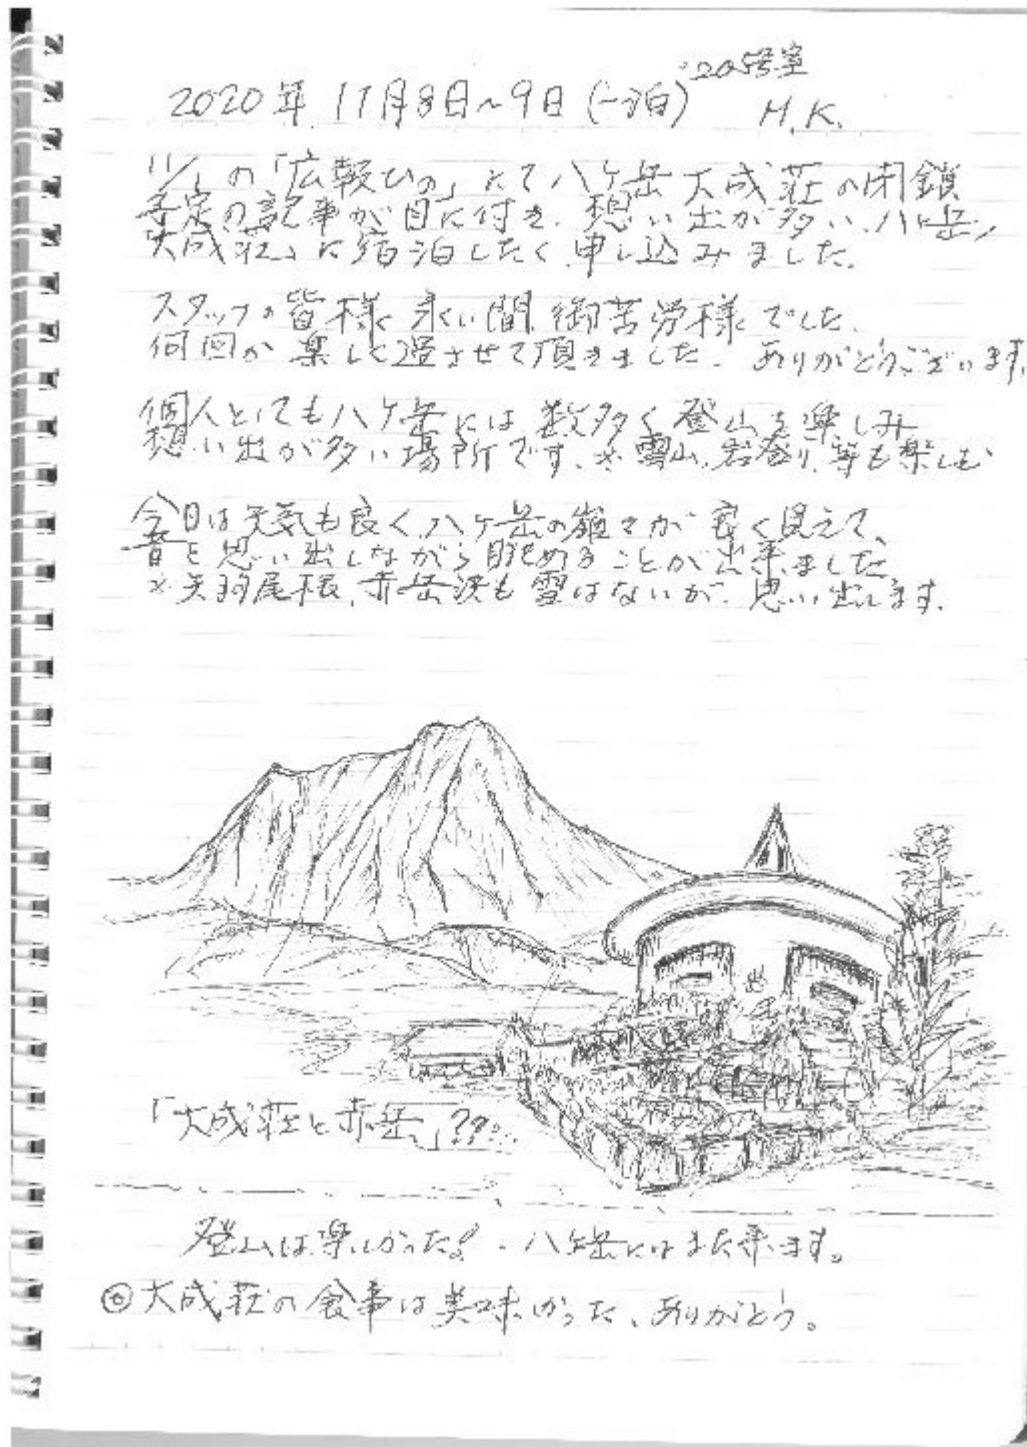 205号室
2020年 11月8日~9日(一泊) H.K.
11/1の「広報ひの」にて八ケ岳大成荘の閉鎖
予定の記事が目に付き、想い出が多い、八ケ岳
大成荘」に宿泊したく申し込みました。
スタッフの皆様 永い間、御苦労様でした。
何回か楽しく過させて頂きました。ありがとうございます。
個人としても八ケ岳には数多く登山を楽しみ
想い出が多い場所です、※雪山、岩登り、等も楽しむ
今日は天気も良く、八ケ岳の嶺々が良く見えて、
昔を思い出しながら眺めることが出来ました
※ 尾根、赤岳沢も雪はないが、思い出します。
「大成荘と赤岳」??...
登山は楽しかった!。八ケ岳にはまた来ます。
◎大成荘の食事は美味かった、ありがとう。